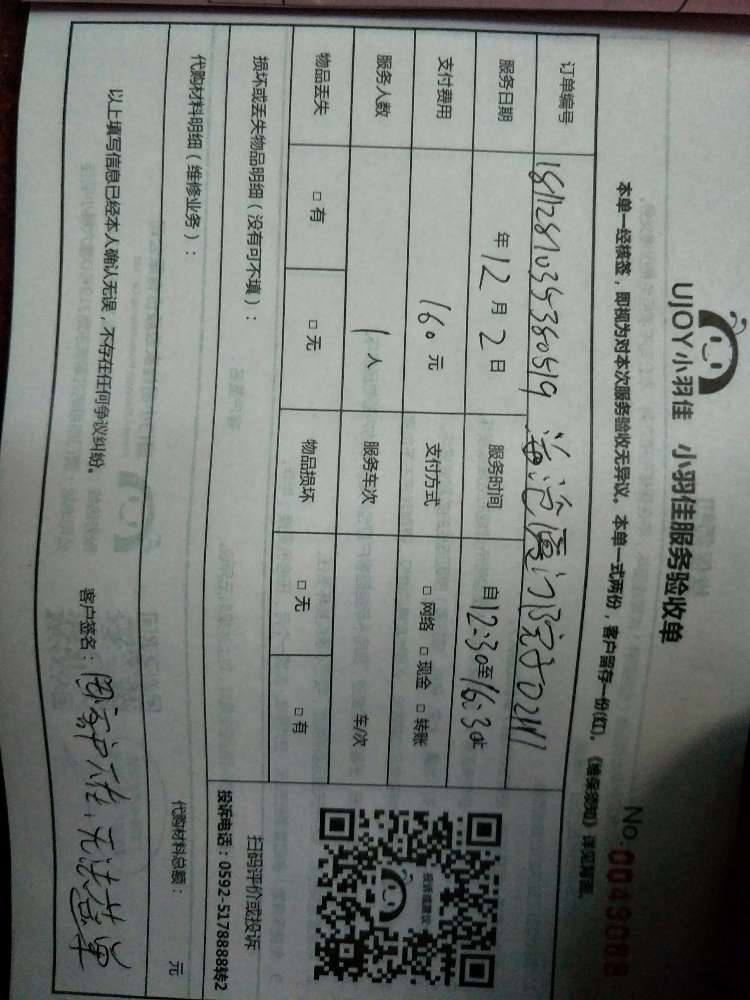 UJOY小羽佳 小羽佳服务验收单
No.0049088
本单一经核签，即视为对本次服务验收无异议。本单一式两份，客户留存一份(红)。《维保须知》详见背面。
订单编号 1811281035380519
服务日期 年12月2日 服务时间 自12:30至16:30止
支付费用 160元 支付方式 □网络 □现金 □转账
服务人数 1人 服务车次 车/次
物品丢失 □有 □无 物品损坏 □无 □有
投诉或建议
扫码评价或投诉
投诉电话：0592-5178888转2
损坏或丢失物品明细（没有可不填）：
代购材料明细（维修业务）：
代购材料总额： 元
以上填写信息已经本人确认无误，不存在任何争议纠纷。
客户签名：因客户在，无法签单